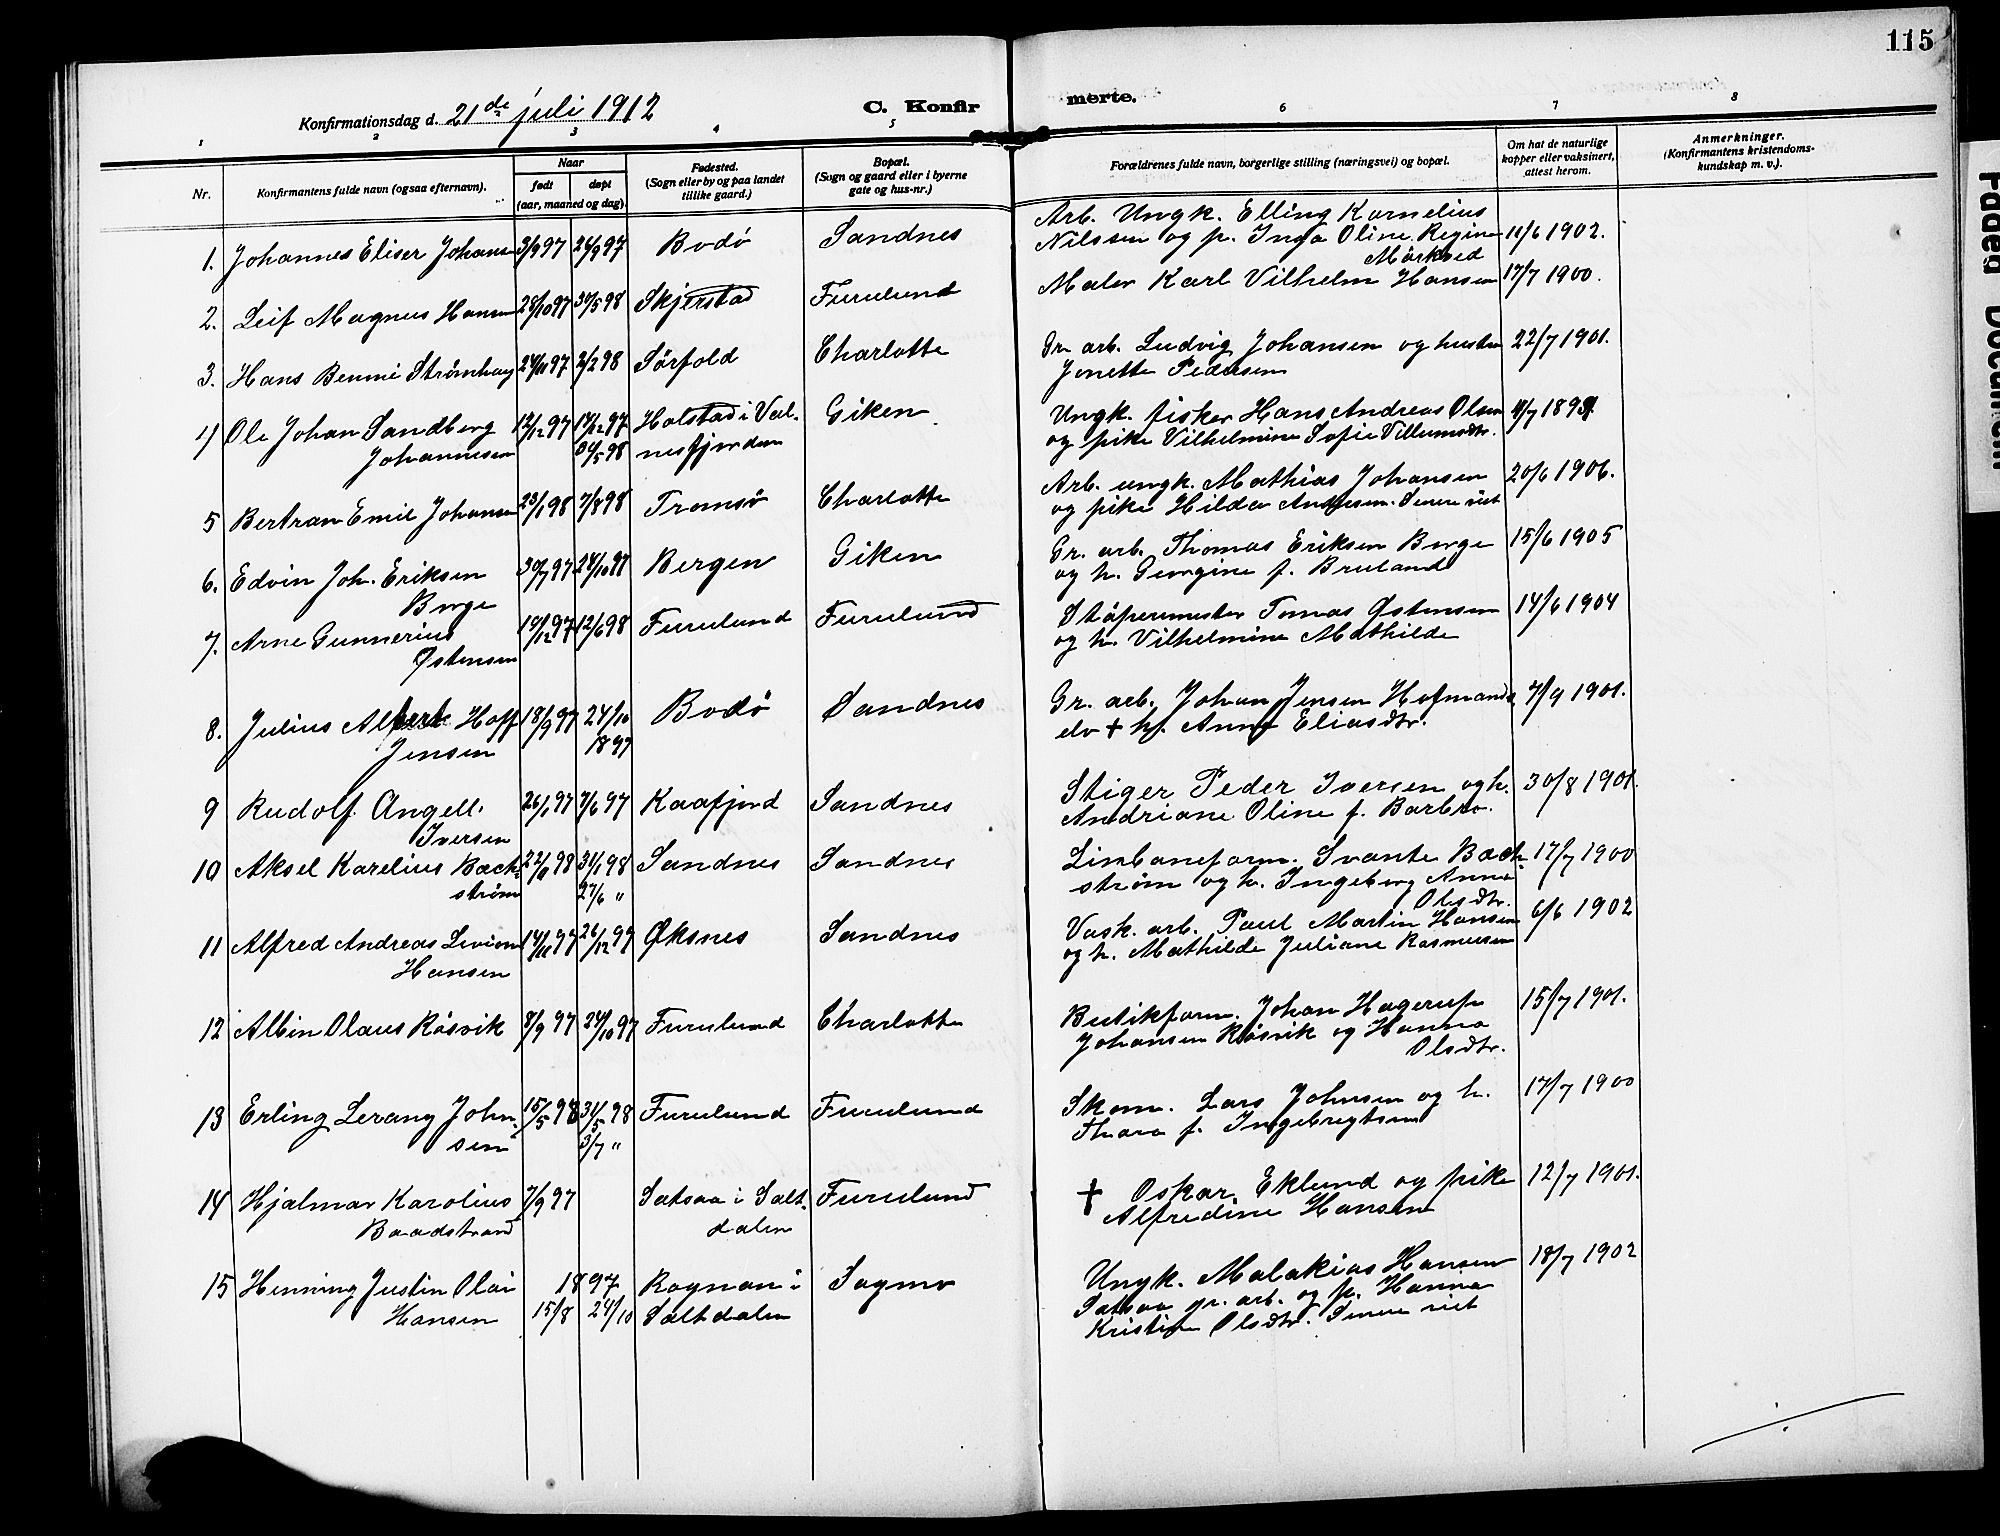 115
Konfirmationsdag d. 21de juli 1912
C. Konfirmerte.
1 2 3 4 5 6 7 8
Nr.
Konfirmantens fulde navn (ogsaa efternavn).
Naar
født døpt
(aar, maaned og dag).
Fødested.
(Sogn eller by og paa landet
tillike gaard.)
Bopæl.
(Sogn og gaard eller i byerne
gate og hus-nr.)
Forældrenes fulde navn, borgerlige stilling (næringsvei) og bopæl.
Om hat de naturlige
kopper eller vaksinert,
attest herom.
Anmerkninger.
(Konfirmantens kristendoms-
kundskap m. v.).
1. Johannes Eliser Johansen 3/9 97 26/9 97 Bodø Sandnes Arb. Ungk. Elling Kornelius
Nilssen og p. Inga Oline Regine 11/6 1902.
Mørkved
2. Leif Magnus Hansen 28/10 97 30/5 98 Skjerstad Furulund Maler Karl Vilhelm Hansen 17/7 1900.
3. Hans Benmé Strømhaug 24/10 97 2/2 98 Sørfold Charlotte Gr. arb. Ludvig Johansen og hustru 22/7 1901.
Jonette Pedersen
4) Ole Johan Sandberg 12/12 97 17/12 97 Holstad i Val- Giken Ungk. fisker Hans Andreas Olsen
Johannesen 30/5 98 nesfjorden og pike Vilhelmine Sofie Villumsdtr.
5 Bertran Emil Johansen 23/1 98 7/8 98 Tromsø Charlotte Arb. ungk. Mathias Johansen 20/6 1906.
og pike Hilda Andersen. Senere viet
6. Edvin Joh. Eriksen 30/7 97 24/10 97 Bergen Giken Gr. arb. Thomas Eriksen Borge 15/6 1905
Borge og h. Georgine f. Bruland
7. Arne Gunnerius 19/12 97 12/6 98 Furulund Furulund Støpermester Tomas Østensen 14/6 1904
Østensen og h. Vilhelmine Mathilde
8. Julius Albert Hoff 18/9 97 24/10 Bodø Sandnes Gr. arb. Johan Jensen Hofmands 7/9 1901.
Jensen 1897 elv + h. Anna Eliasdtr.
9 Rudolf Angell 26/1 97 7/6 97 Kaafjord Sandnes Stiger Peder Iversen og h. 30/8 1901.
Iversen Andriane Oline f. Barbro.
10 Aksel Karelius Back- 22/1 98 31/1 98 Sandnes Sandnes Linbaneform. Svante Back- 17/7 1900
strøm 27/6 " strøm og h. Ingeborg Anna
Olsdtr.
11 Alfred Andreas Livion 14/11 97 26/12 97 Øksnes Sandnes Vask. arb. Paul Martin Hansen 6/6 1902
Hansen og h. Mathilde Juliane Rasmussen
12 Albin Olaus Røsvik 8/9 97 24/10 97 Furulund Charlotte Butikform. Johan Hagerup 15/7 1901.
Johansen Røsvik og Hanna
Olsdtr.
13 Erling Lerang John- 15/5 98 31/5 98 Furulund Furulund Skom. Lars Johnsen og h. 17/7 1900
sen 3/7 " Thora f. Ingebregtsen
14 Hjalmar Karolius 7/9 97 Satsaa i Salt- Furulund + Oskar Eklund og pike 12/7 1901.
Baadstrand dalen Alfredine Hansen
15 Henning Justin Olai 1897 Rognan i Sagmo Ungk. Malakias Hansen 18/7 1902
Hansen 15/8 24/10 Saltdalen Satsaa gr. arb. og p. Hanna
Kristin Olsdtr. Senere viet
Faded Document